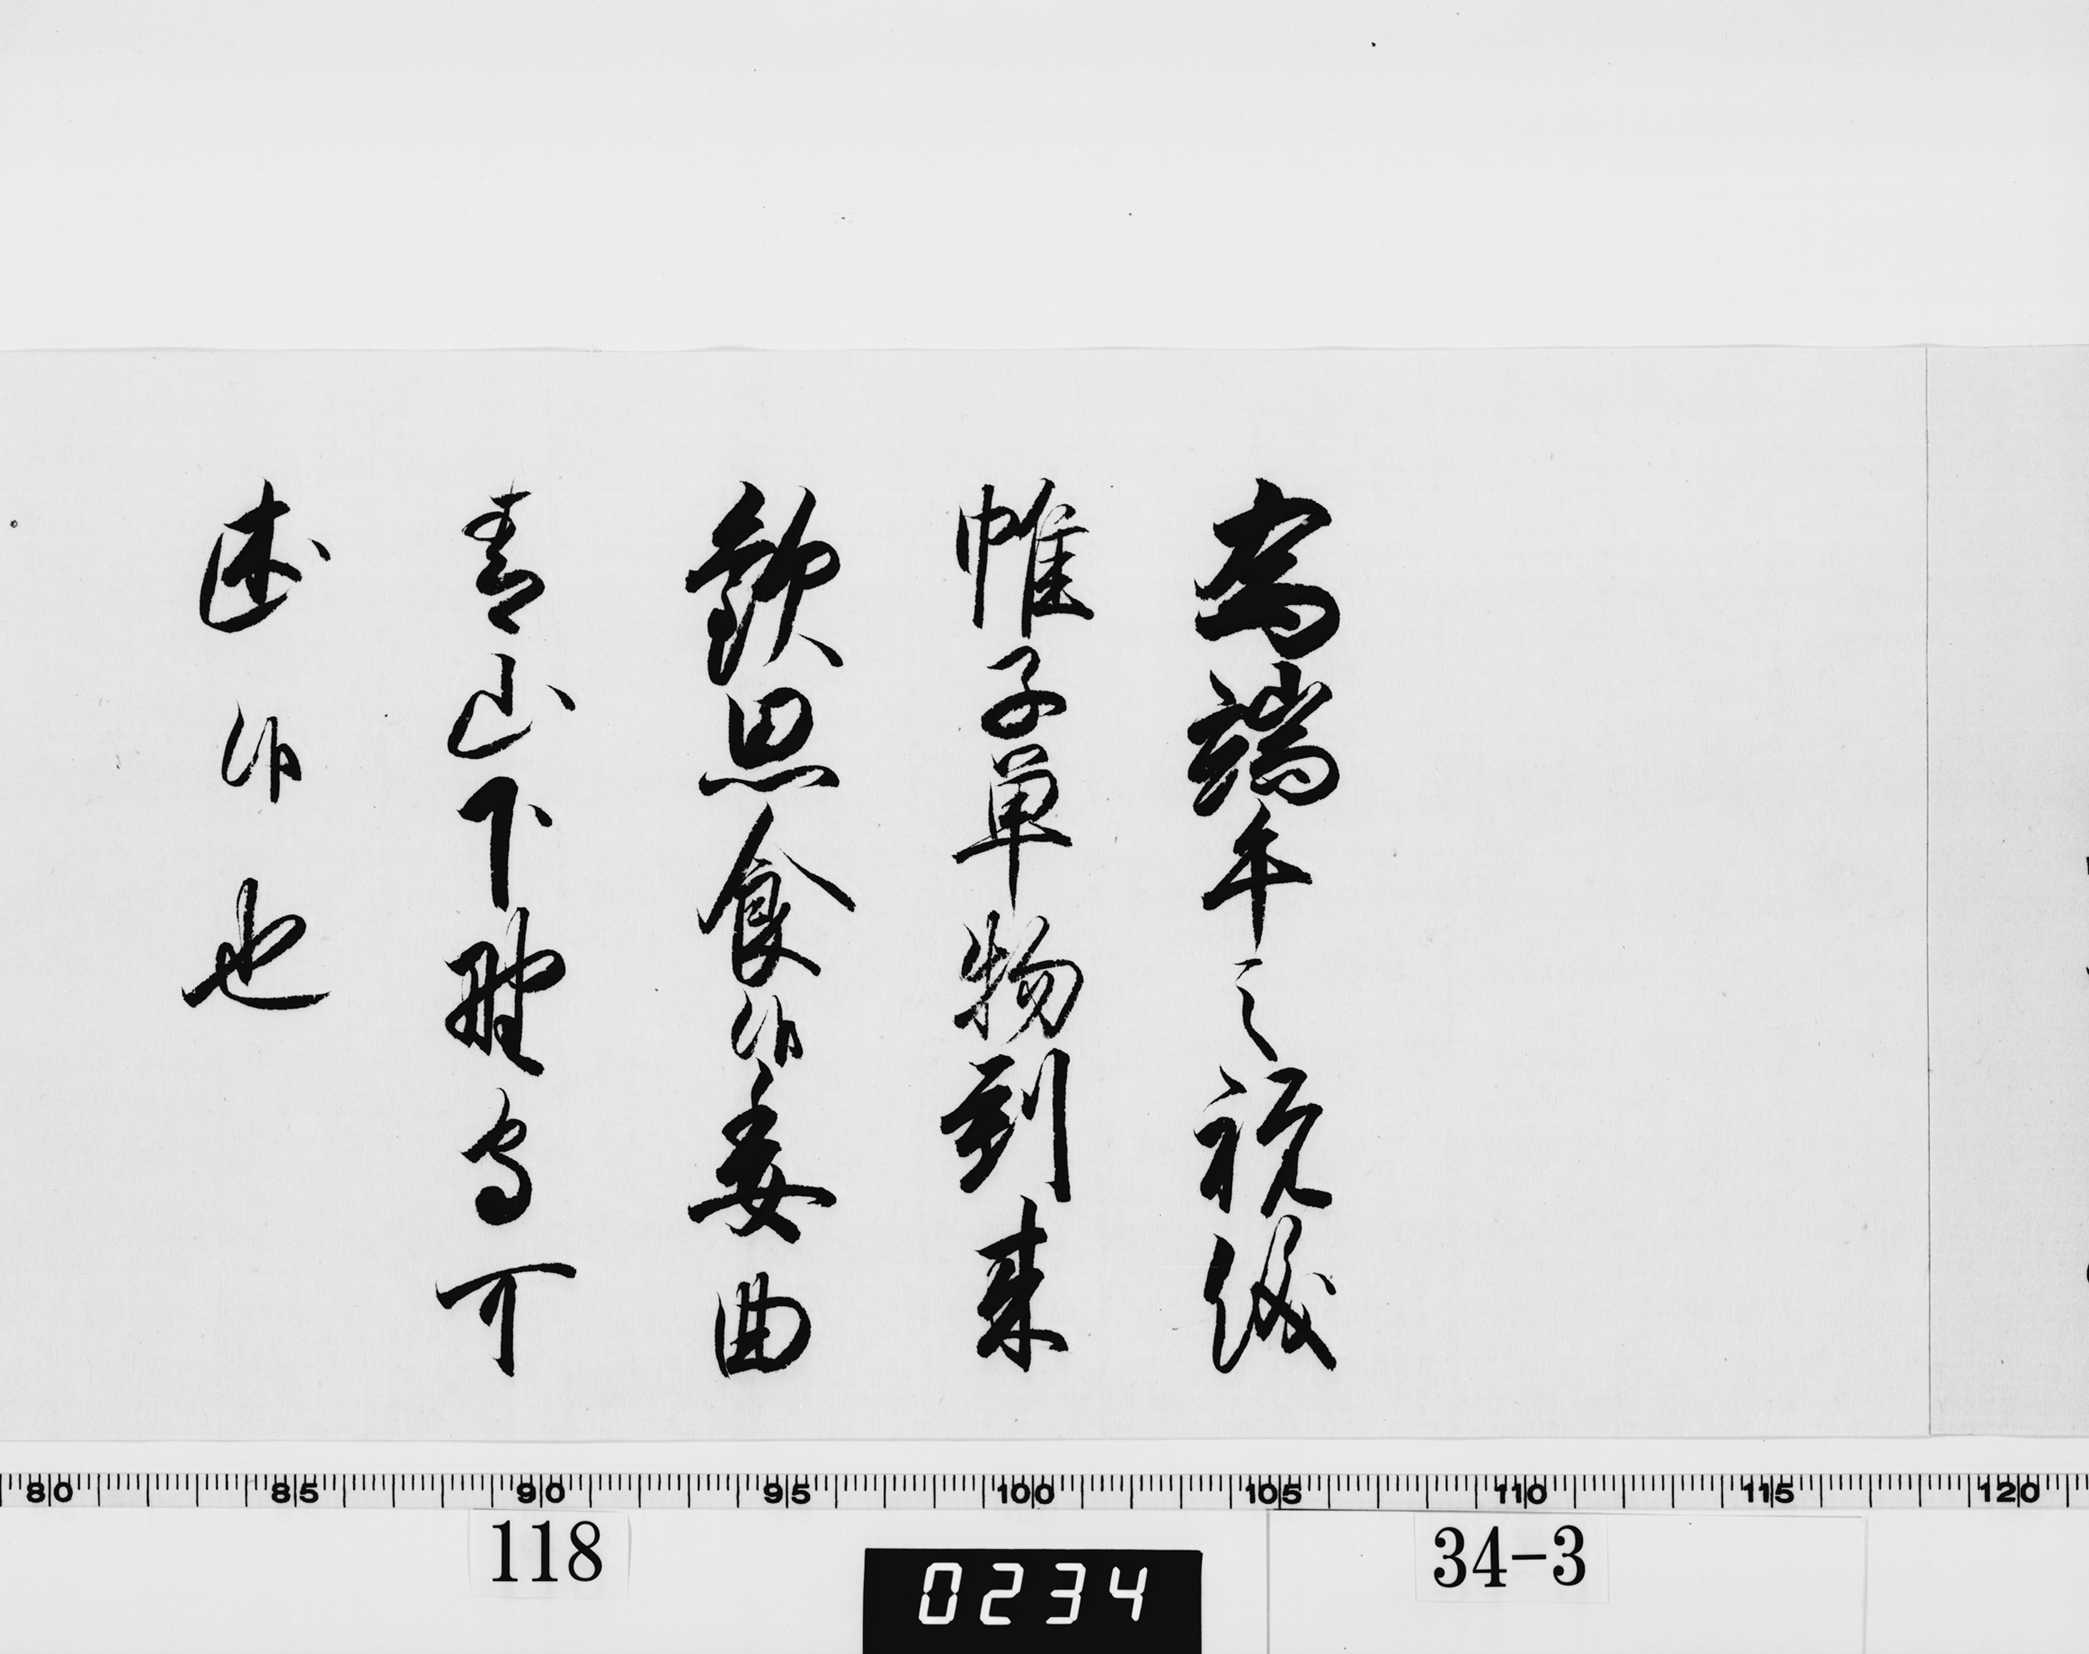 為端午之祝儀
帷子単物到来
歓思食候委曲
青山下野守可
述候也
80 85 90 95 100 105 110 115 120
118
0234
34-3